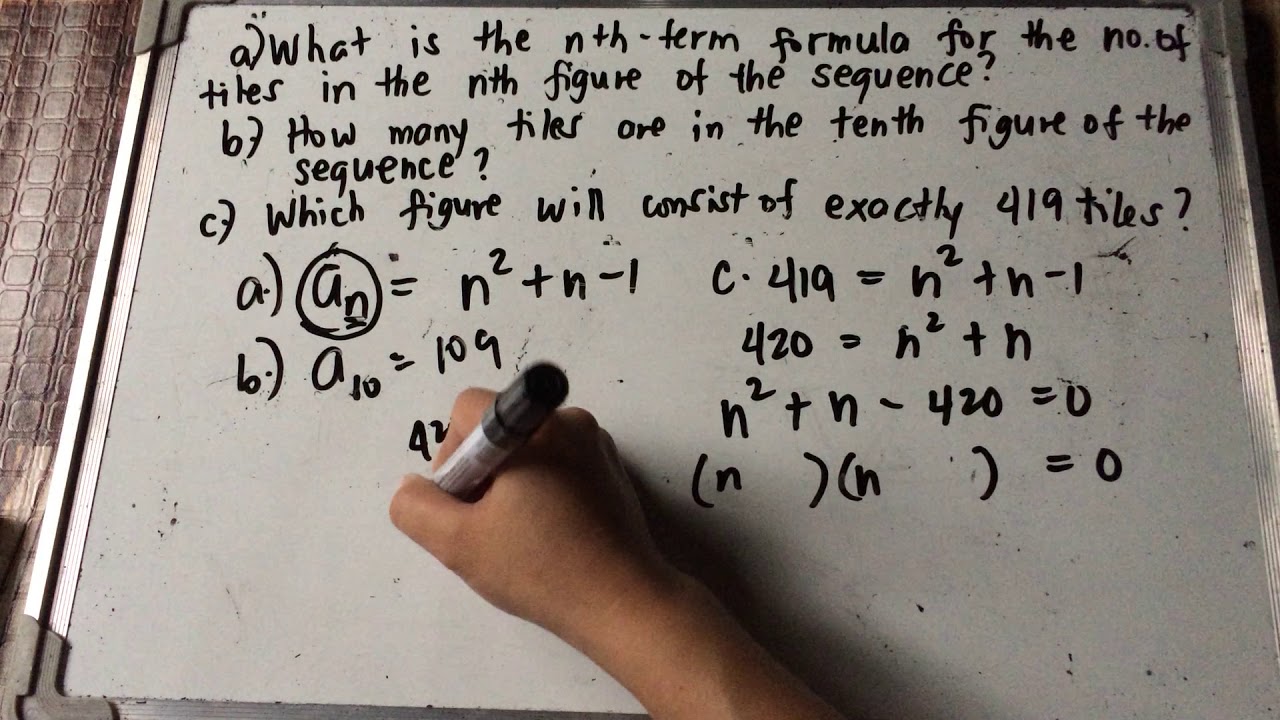 a) What is the nth-term formula for the no. of
tiles in the nth figure of the sequence?
b) How many tiles are in the tenth figure of the
sequence?
c) Which figure will consist of exactly 419 tiles?
a.) aₙ = n² + n - 1
b.) a₁₀ = 109
42
c. 419 = n² + n - 1
420 = n² + n
n² + n - 420 = 0
(n )(n ) = 0